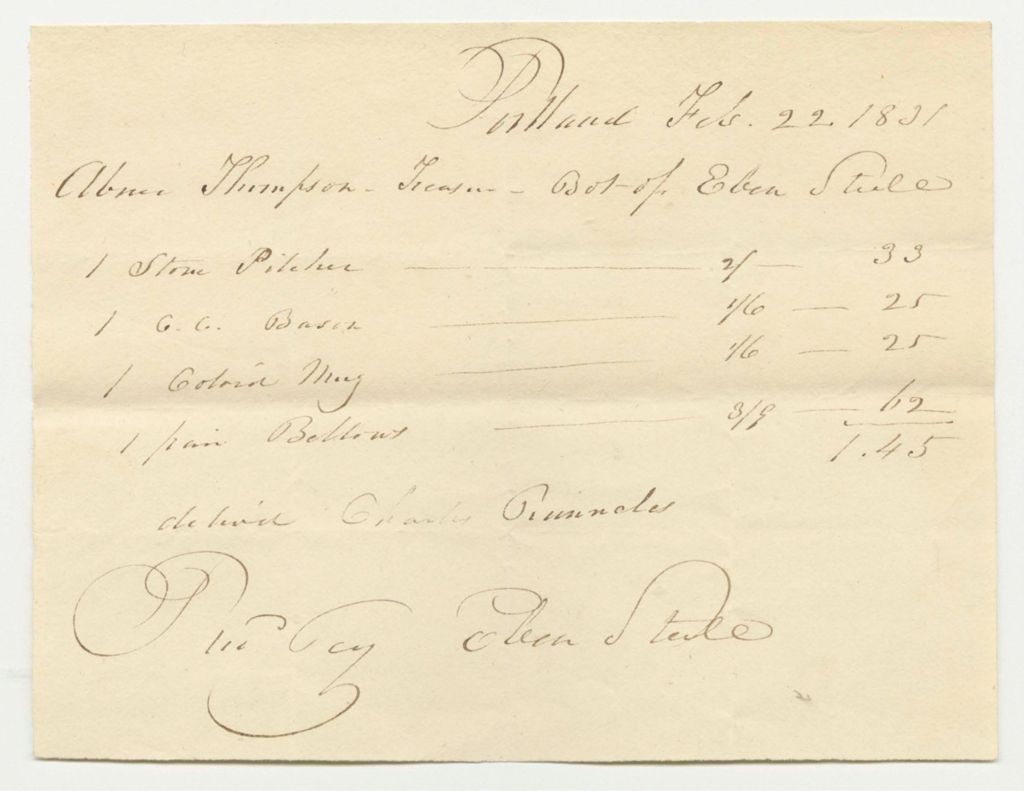 Portland Feb. 22. 1831
Abner Thompson - Treasurer - Bot of Eben Steele
1 Stone Pitcher — 2/ — 33
1 C.C. Basin — 1/6 — 25
1 Colord Mug — 1/6 — 25
1 pair Bellows — 3/9 — 62
1.45
delivd Charles
Recd Pay Eben Steele